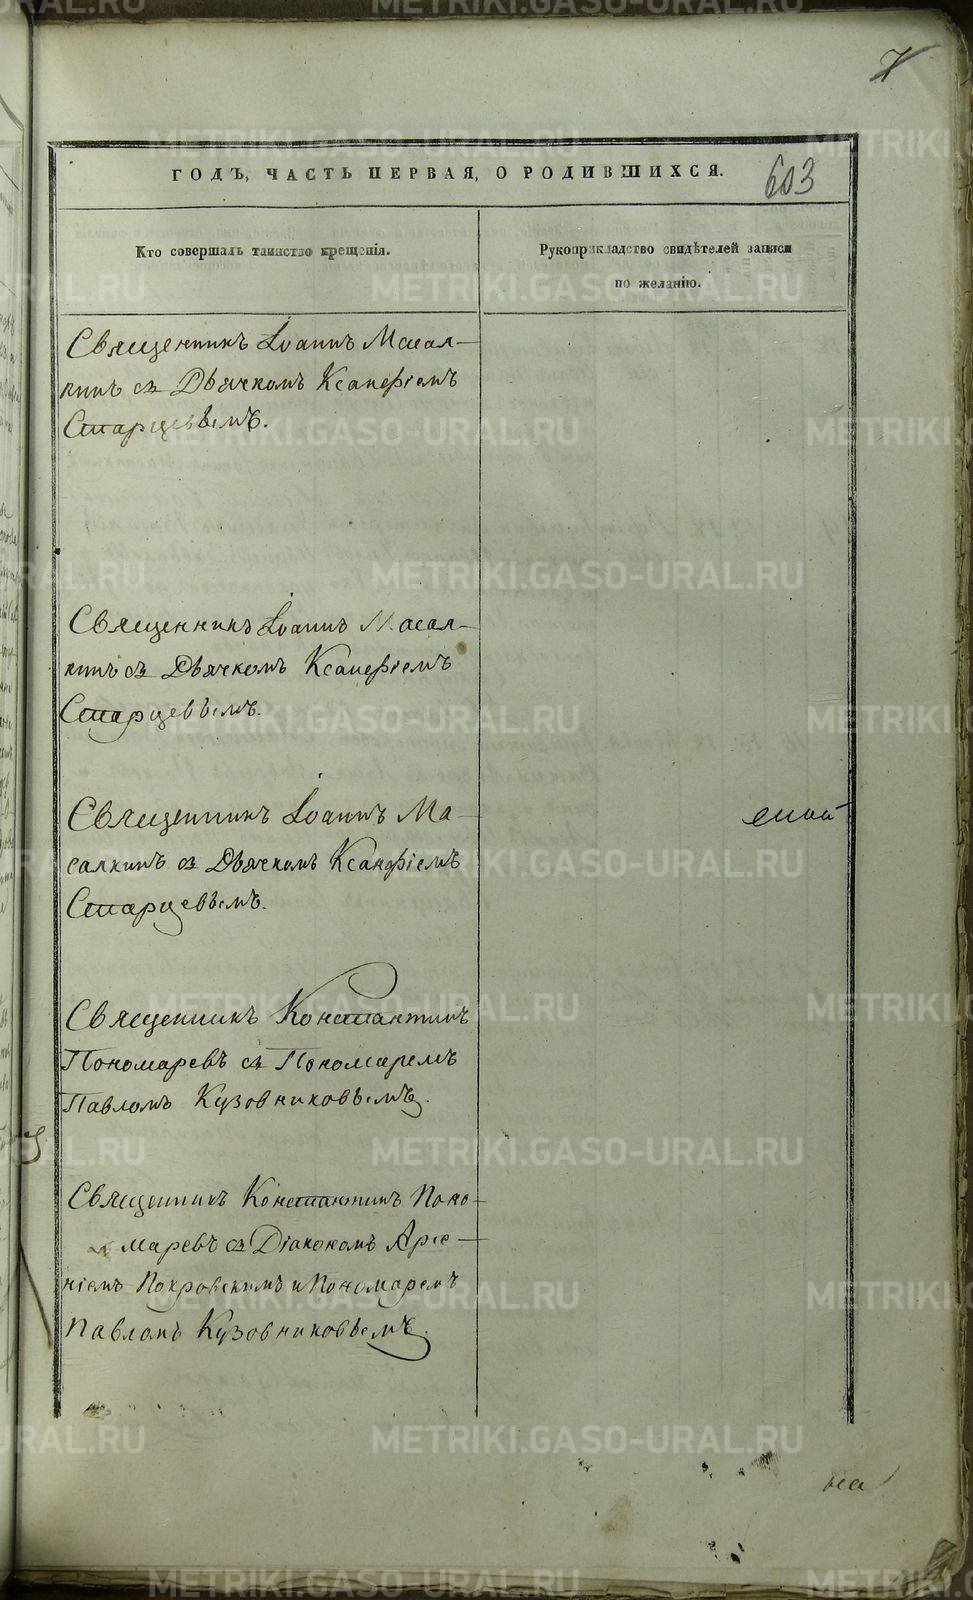 603
ГОДЪ, ЧАСТЬ ПЕРВАЯ, О РОДИВШИХСЯ.
Кто совершалъ таинство крещенія.
Рукоприкладство свидѣтелей записи
по желанію.
Священникъ Іоаннъ Масал-
кинъ съ Дьячкомъ Ксанфіемъ
Старцевымъ.
Священникъ Іоаннъ Масал-
кинъ съ Дьячкомъ Ксанфіемъ
Старцевымъ.
Священникъ Іоаннъ Ма-
салкинъ съ Дьячкомъ Ксанфіемъ
Старцевымъ.
Священникъ Константинъ
Пономаревъ съ Пономаремъ
Павломъ Кузовниковымъ.
Священникъ Константинъ Поно-
маревъ съ Діакономъ Арсе-
ніемъ Покровскимъ и Пономаремъ
Павломъ Кузовниковымъ.
METRIKI.GASO-URAL.RU